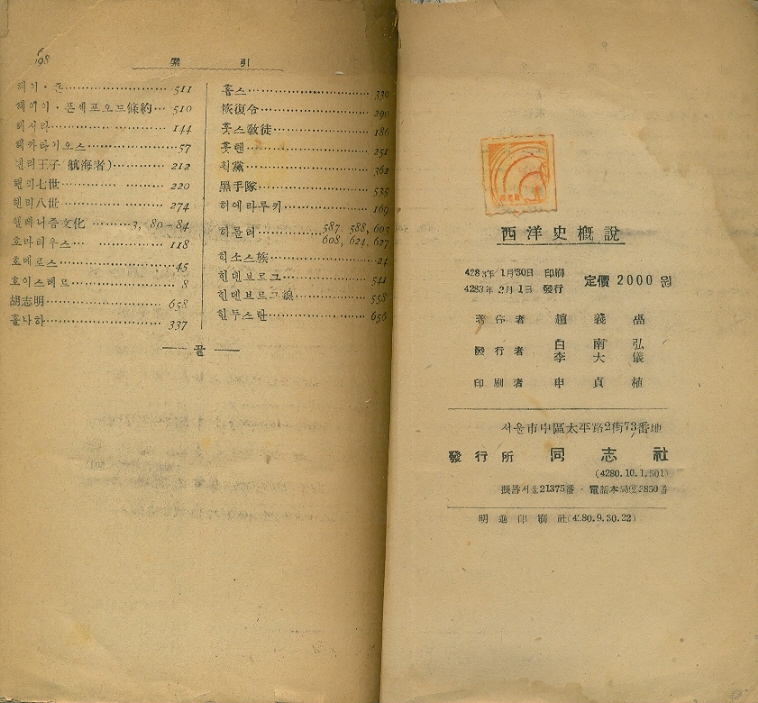 索 引
헤이・죤 511
헤이・폰세포오드條約 510
헤시라 144
헤카타이오스 57
헨리王子(航海者) 212
헨리七世 220
헨리八世 274
헬레니즘文化 3, 80 84
호라티우스 118
호메로스 45
호이스테드 8
胡志明 658
홀나하 337
홉스 330
恢復令 290
훗스敎徒 186
훗텐 251
휙黨 362
黑手隊 535
히에라루키 169
히틀러 587 588, 602
608, 624, 627
히소스族 24
힌덴부르그 544
힌덴부르그線 558
힌두스탄 656
—— 끝 ——
西洋史槪說
4283年 1月30日 印刷
4283年 2月 1日 發行
定價 2000 원
著作者 趙義卨
發行者 白南弘
李大儀
印刷者 申貞植
서울市中區太平路2街73番地
發行所 同志社
(4280.10.1.501)
振替서울21375番・電話本局②2850番
明進印刷社(4280.9.30.22)